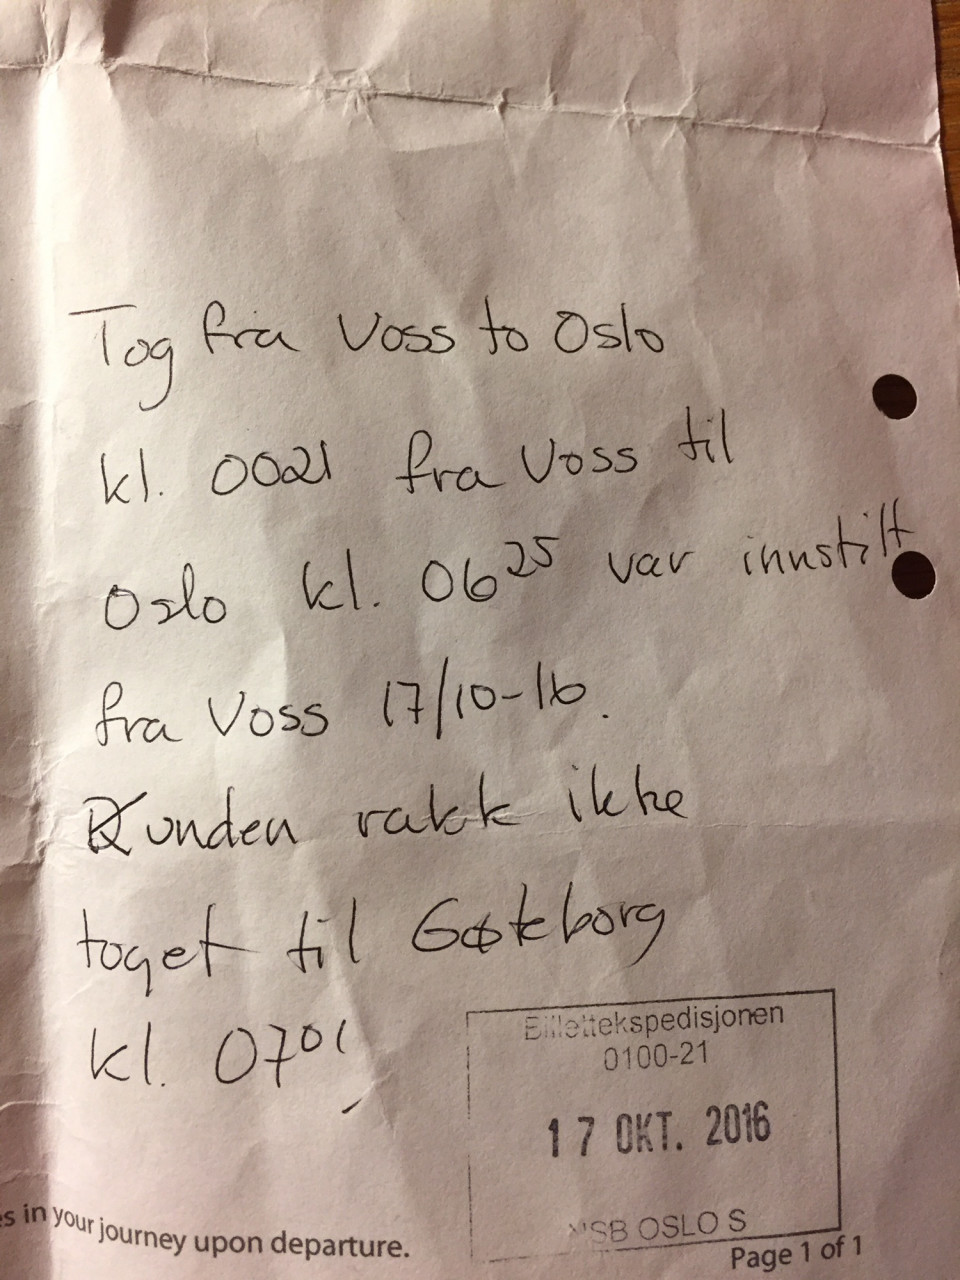 Tog fra Voss to Oslo
kl. 0021 fra Voss til
Oslo kl. 06²⁵ var innstilt
fra Voss 17/10-16.
Kunden rakk ikke
toget til Gøteborg
kl. 07⁰¹
Billettekspedisjonen
0100-21
17 OKT. 2016
NSB OSLO S
es in your journey upon departure.
Page 1 of 1